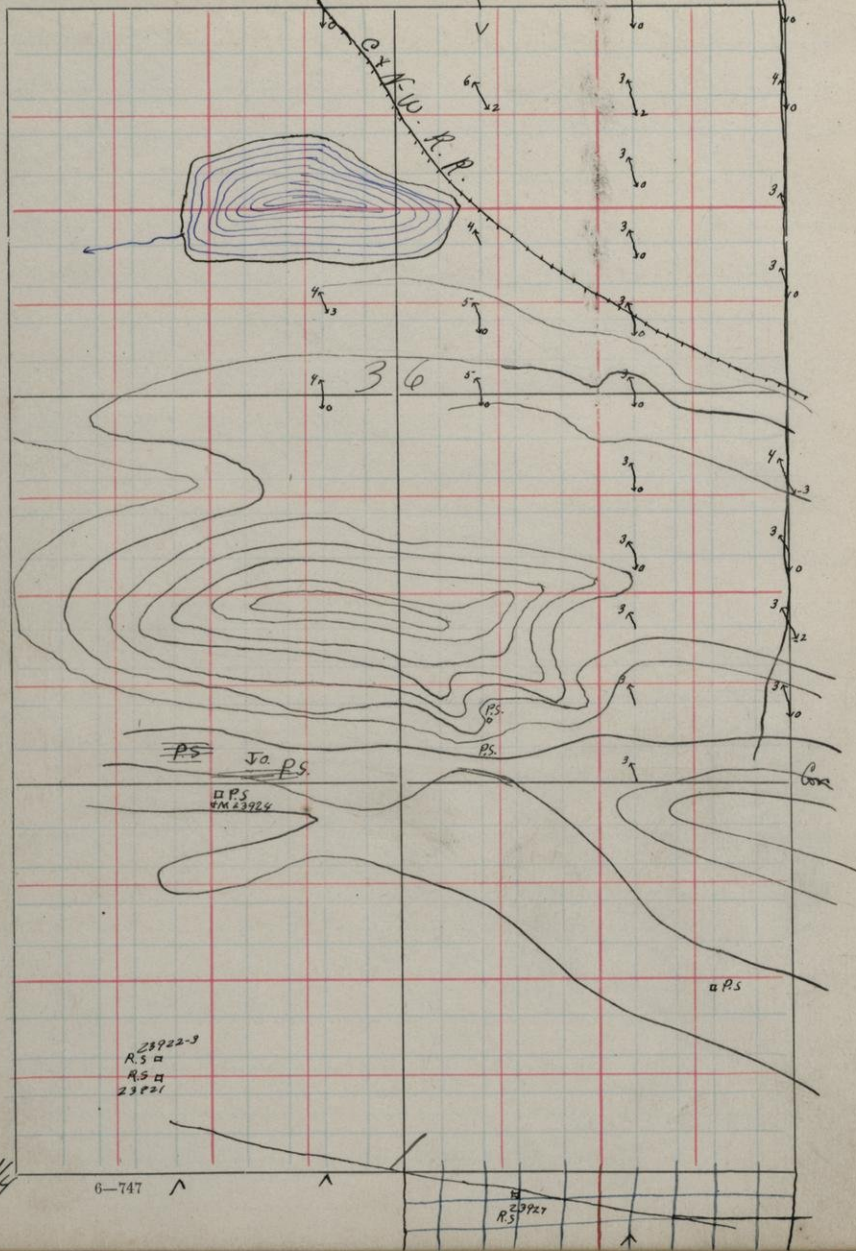 C & N-W. R.R.
0
0
0
6
2
3
2
4
0
3
0
3
4
3
0
3
0
4
3
5
0
3
0
36
4
0
5
0
3
0
3
0
4
3
3
0
3
0
3
3
2
3
3
0
P.S.
P.S.
P.S
Jo.
P.S.
3
P.S
M23924
P.S
23922-3
R.S
R.S
23921
6—747
R.S